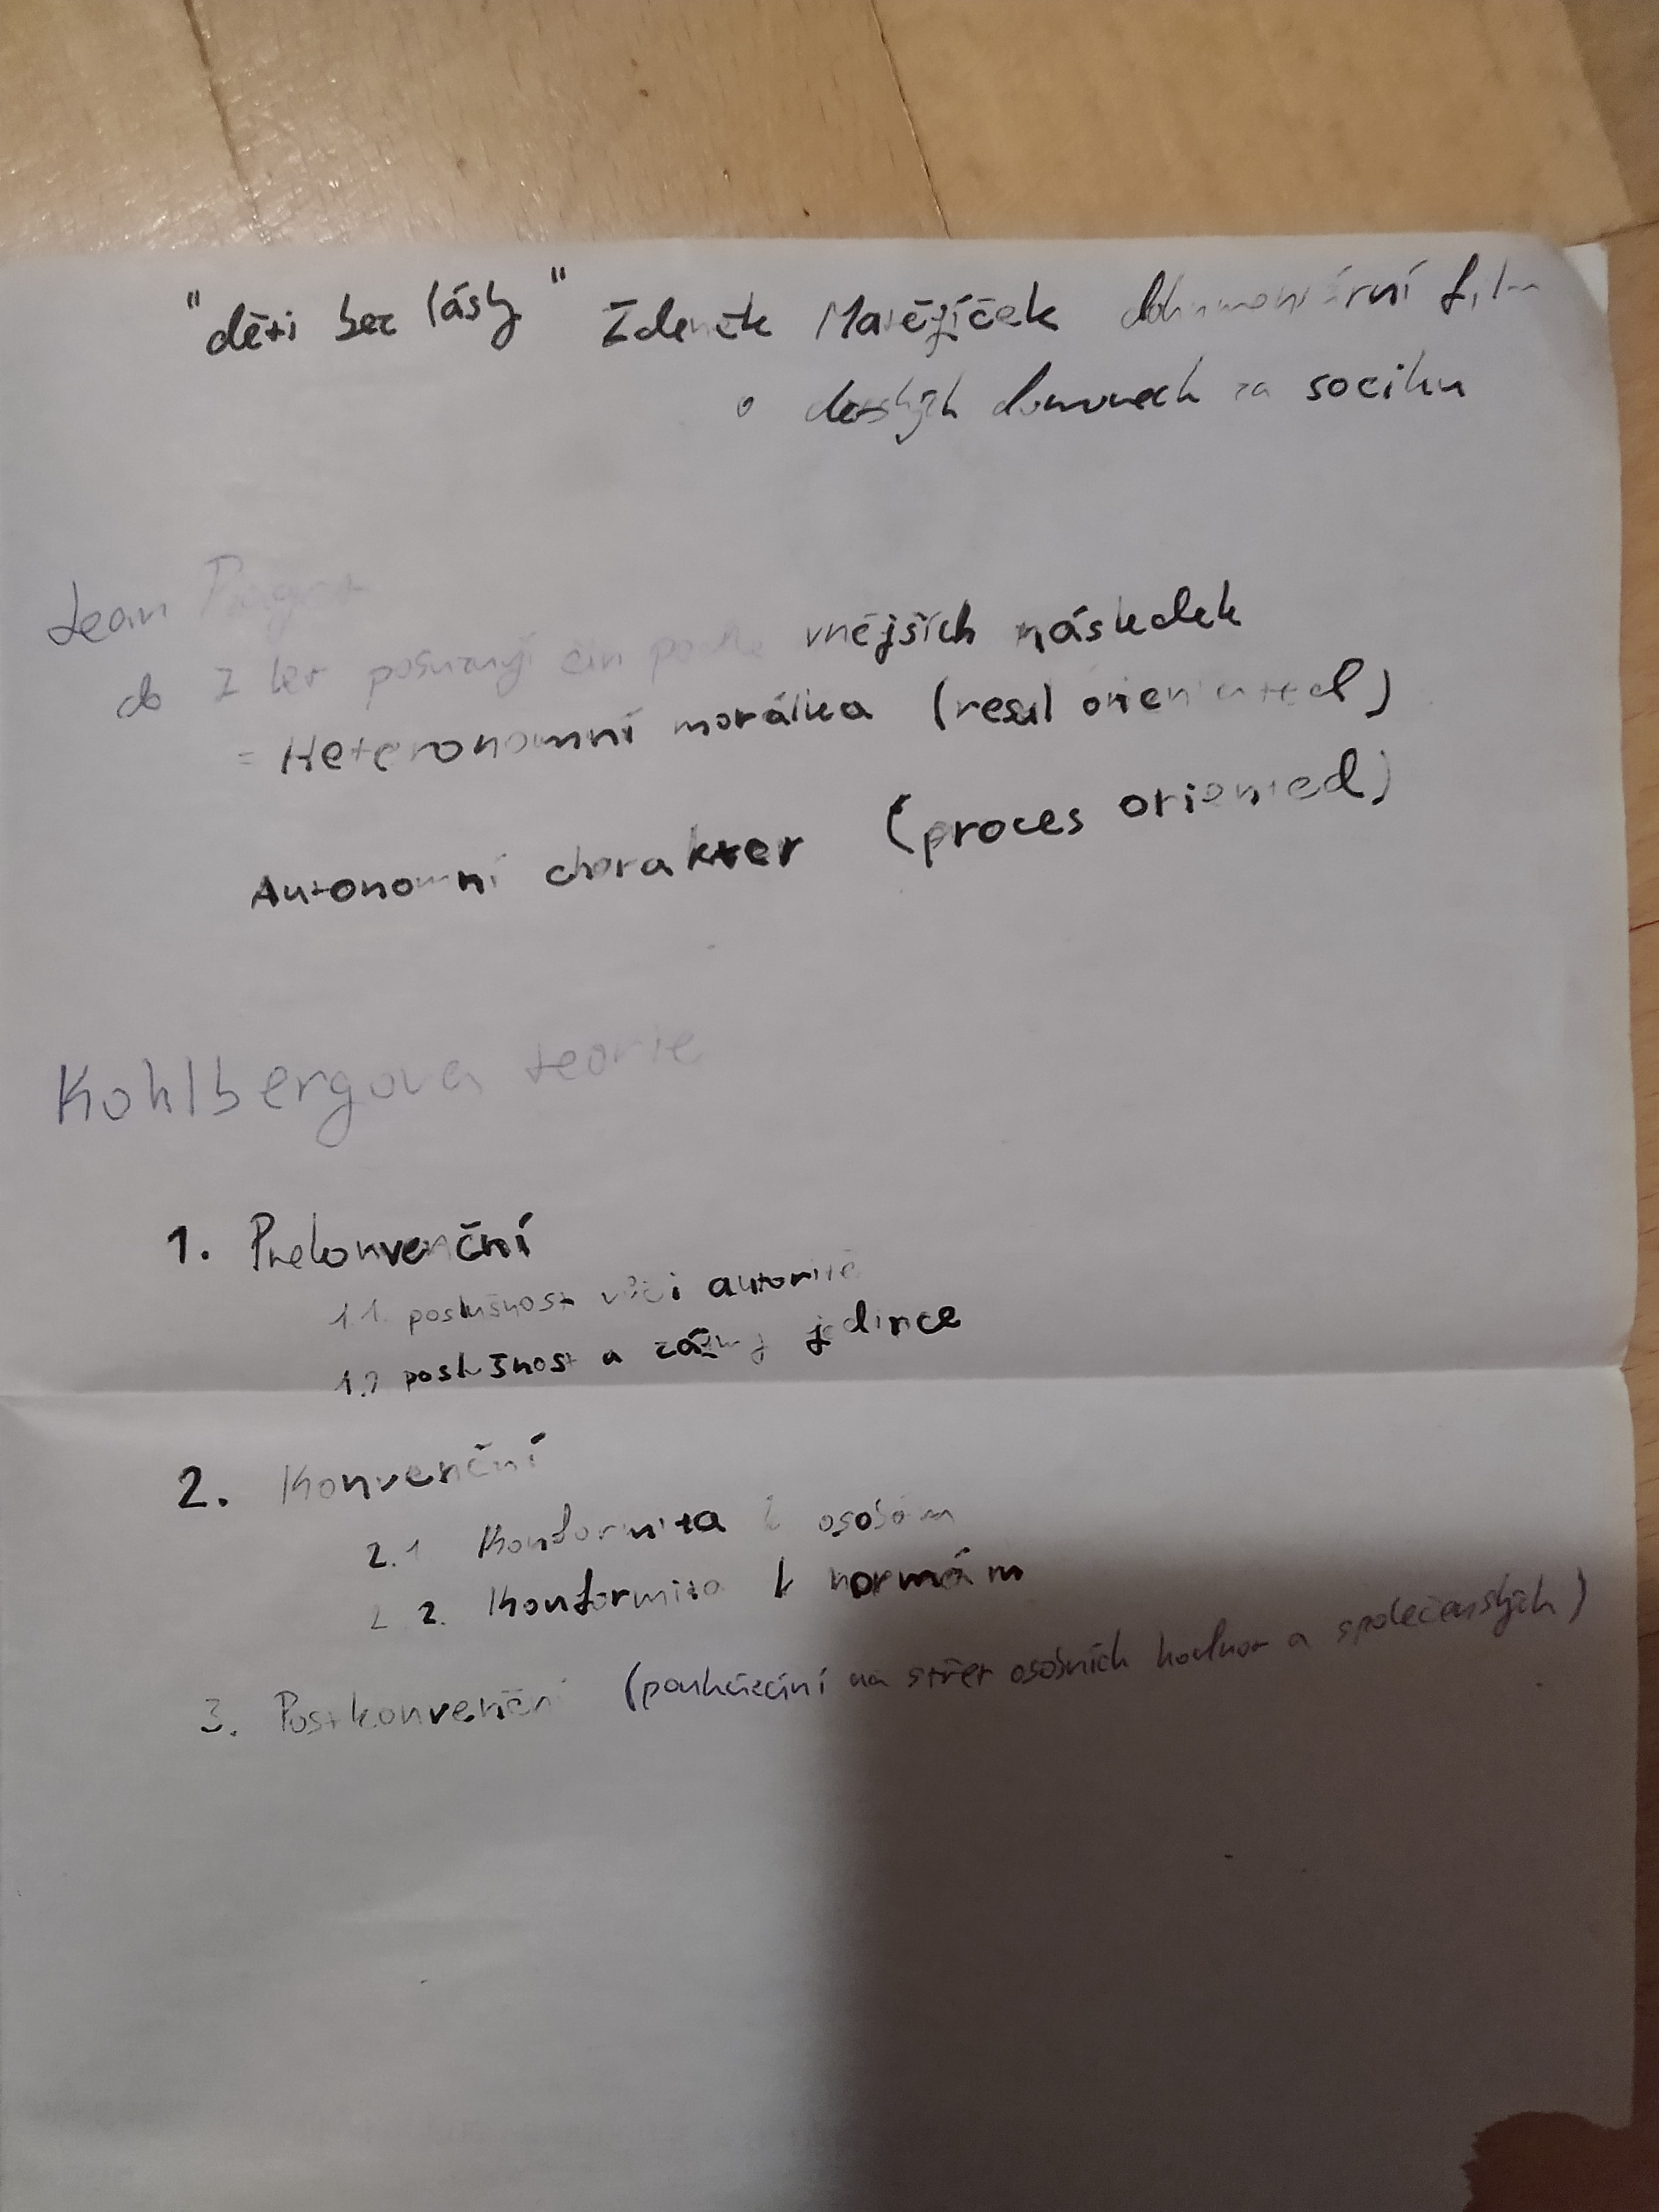 "děti bez lásky" Zdeněk Matějíček dokumentární film
o dětských domovech za sociku
Jean Piaget
do 7 let posuzují čin podle vnějších následek
= Heteronomní morálka (resul orientated)
Autonomní charakter (proces oriented)
Kohlbergova teorie
1. Prekonvenční
1.1. poslušnost vůči autoritě
1.2 poslušnost a zájmy jedince
2. Konvenční
2.1 Konformita k osobám
2.2. Konformita k normám
3. Postkonvenční (poukázání na střet osobních hodnot a společenských)